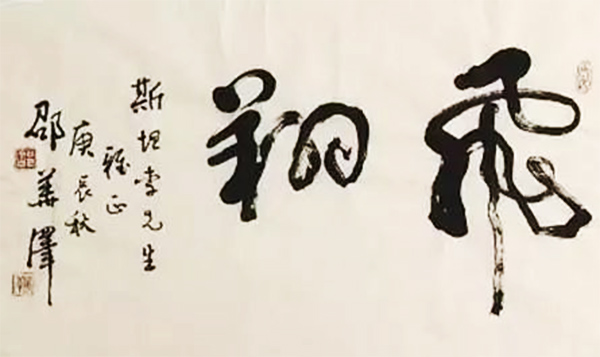 飛翔
斯坦李先生
雅正
庚辰秋
邵華澤